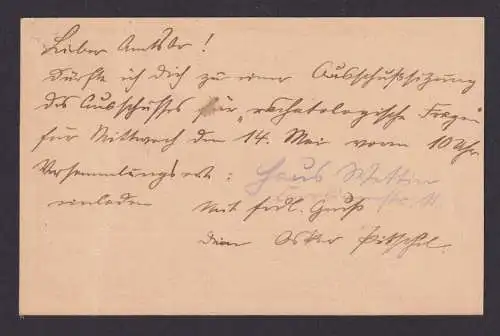 Lieber Amtsbr!
Dürfte ich Dich zu einer Ausschußsitzung
des Ausschusses für „eschatologische Fragen“
für Mittwoch den 14. Mai vorm 10 Uhr
Versammlungsort: Haus Wettin
einladen
Mit frdl. Gruß
Dein Oskar